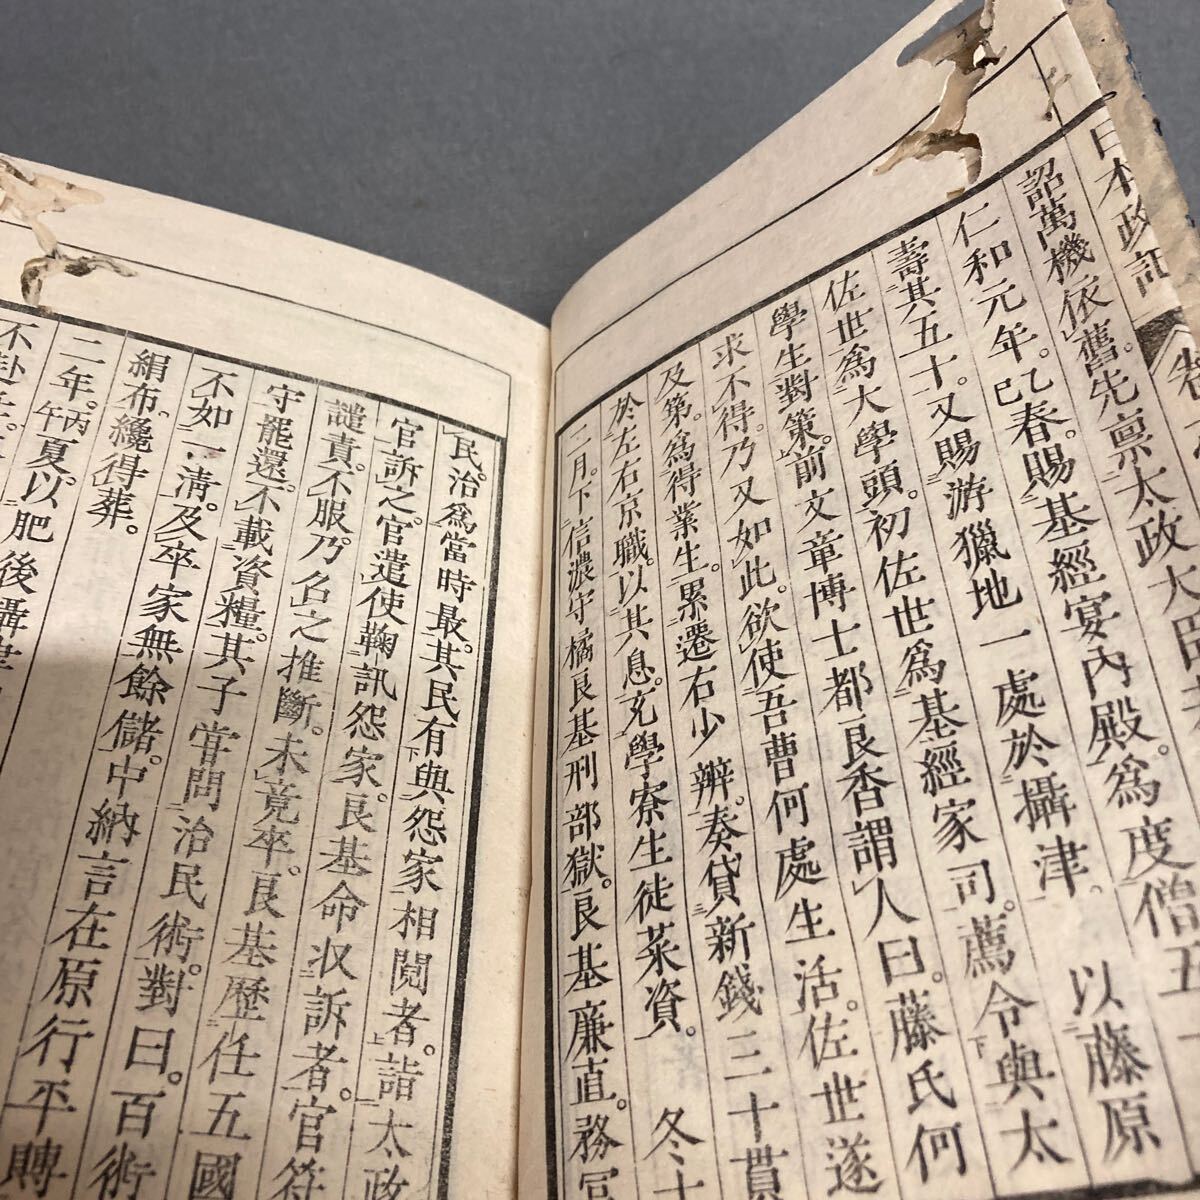 日本政記
詔萬機依舊。先禀太政大臣
仁和元年。乙巳春。賜基經宴內殿。爲度僧五十
壽其五十。又賜游獵地一處於攝津。 以藤原
佐世爲大學頭。初佐世爲基經家司。薦令與太
學生對策。前文章博士都良香謂人曰。藤氏何
求不得。乃又如此。欲使吾曹何處生活。佐世遂
及第。爲得業生。累遷右少辨。奏貸新錢三十貫
於左右京職。以其息。充學寮生徒菜資。 冬十
二月。下信濃守橘良基刑部獄。良基廉直。務
民治爲當時最。其民有與怨家相鬩者。詣太政
官訴之。官遣使鞠訊怨家。良基命収訴者。官符
譴責。不服。乃召之推斷。未竟卒。良基歷任五國
守。罷還。不載資糧。其子甞問治民術。對曰。百術
不如一清。及卒家無餘儲。中納言在原行平賻
絹布。纔得葬。
二年。丙午夏。以肥後